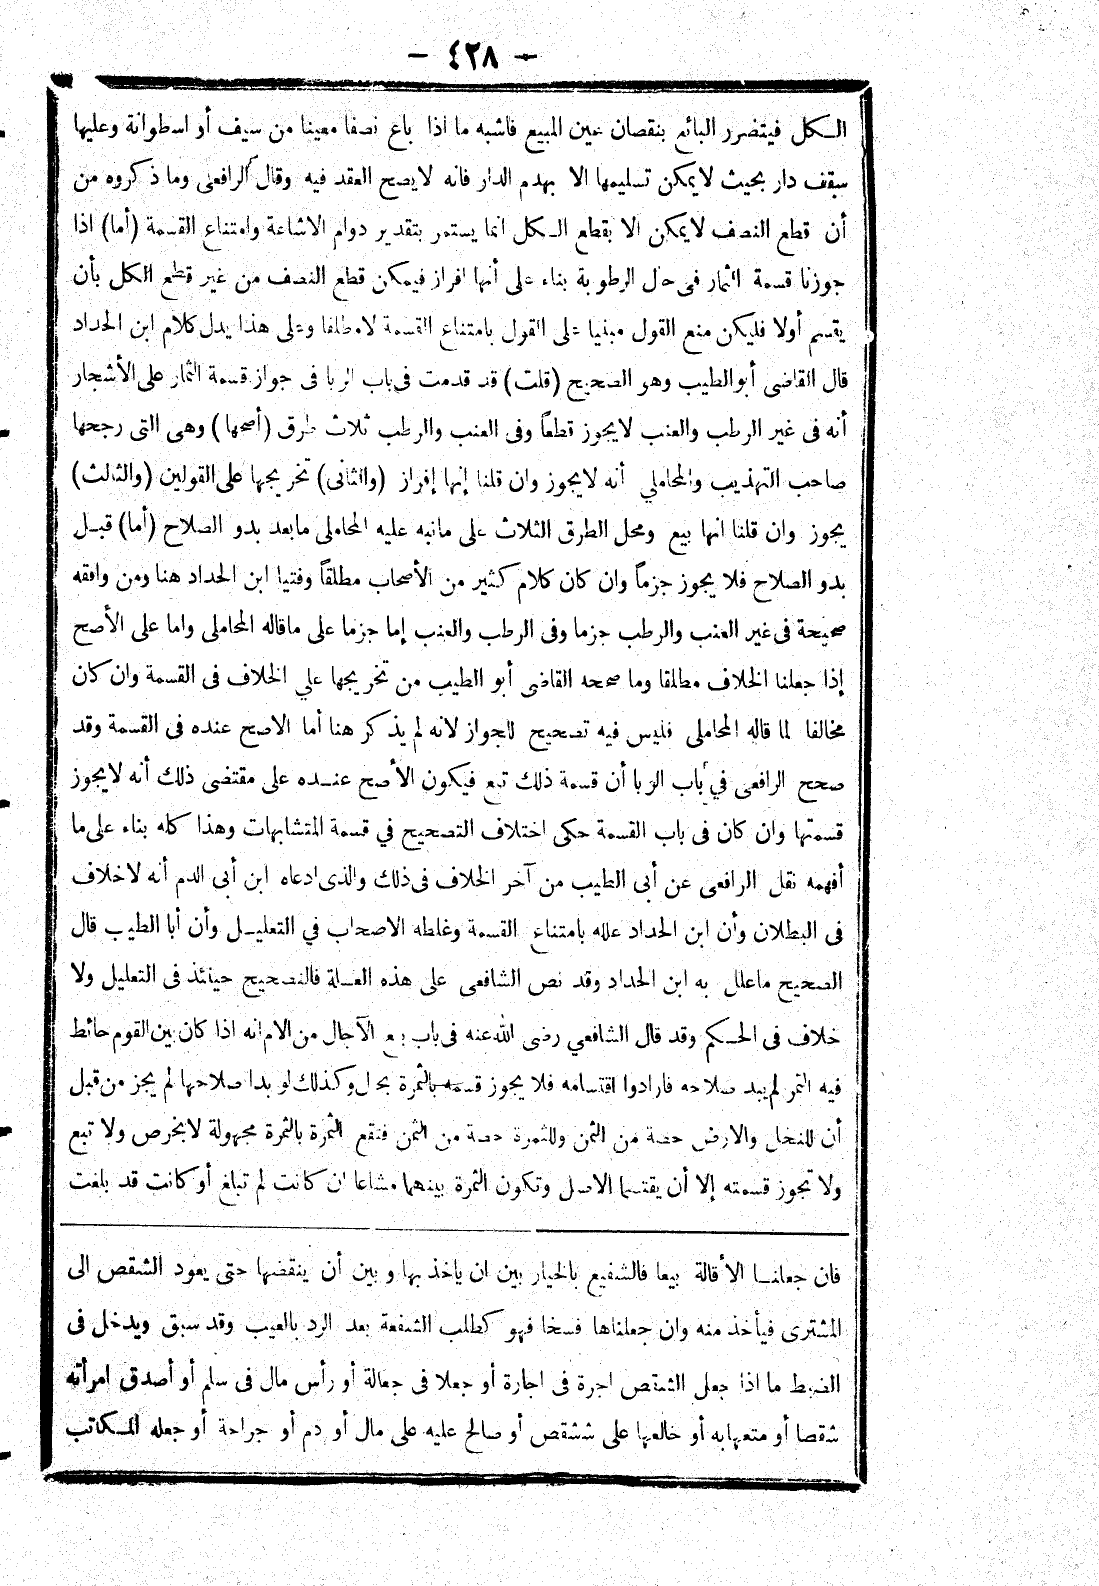 - ٤٢٨ -
الكل فيتضرر البائع بنقصان عين المبيع فاشبه ما اذا باع نصفا معينا من سيف أو اسطوانة وعليها
سقف دار بحيث لا يمكن تسليمها الا بهدم الدار فانه لا يصح العقد فيه وقال الرافعى وما ذكروه من
أن قطع النصف لا يمكن الا بقطع الكل انما يستمر بتقدير دوام الاشاعة وامتناع القسمة (أما) اذا
جوزنا قسمة الثمار فى حال الرطوبة بناء على أنها افراز فيمكن قطع النصف من غير قطع الكل بأن
يقسم أولا فليكن منع القول مبنيا على القول بامتناع القسمة لا مطلقا وعلى هذا يدل كلام ابن الحداد
قال القاضى أبو الطيب وهو الصحيح (قلت) قد قدمت فى باب الربا فى جواز قسمة الثمار على الأشجار
أنه فى غير الرطب والعنب لا يجوز قطعاً وفى العنب والرطب ثلاث طرق (أصحها) وهى التى رجحها
صاحب التهذيب والمحاملي أنه لا يجوز وان قلنا إنها إفراز (والثانى) تخريجها على القولين (والثالث)
يجوز وان قلنا انها بيع ومحل الطرق الثلاث على مانبه عليه المحاملى مابعد بدو الصلاح (أما) قبل
بدو الصلاح فلا يجوز جزماً وان كان كلام كثير من الأصحاب مطلقاً وفتيا ابن الحداد هنا ومن وافقه
صحيحة فى غير العنب والرطب جزما وفى الرطب والعنب إما جزما على ماقاله المحاملى واما على الأصح
إذا جعلنا الخلاف مطلقا وما صححه القاضى أبو الطيب من تخريجها علي الخلاف فى القسمة وان كان
مخالفا لما قاله المحاملى فليس فيه تصحيح للجواز لانه لم يذكر هنا أما الاصح عنده فى القسمة وقد
صحح الرافعى في باب الربا أن قسمة ذلك تبع فيكون الأصح عنده على مقتضى ذلك أنه لا يجوز
قسمتها وان كان فى باب القسمة حكى اختلاف التصحيح في قسمة المتشابهات وهذا كله بناء على ما
أفهمه نقل الرافعى عن أبى الطيب من آخر الخلاف فى ذلك والذى ادعاه ابن أبى الدم أنه لا خلاف
فى البطلان وأن ابن الحداد علله بامتناع القسمة وغلطه الاصحاب في التعليل وأن أبا الطيب قال
الصحيح ماعلل به ابن الحداد وقد نص الشافعى على هذه العلة فالتصحيح حينئذ فى التعليل ولا
خلاف فى الحكم وقد قال الشافعي رضى الله عنه فى باب بيع الآجال من الام انه اذا كان بين القوم حائط
فيه الثمر لم يبد صلاحه فارادوا اقتسامه فلا يجوز قسمه بالثمرة بحال وكذلك لو بدا صلاحها لم يجز من قبل
أن للنخل والارض حصة من الثمن وللثمرة حصة من الثمن فتقع الثمرة بالثمرة مجهولة لا بخرص ولا تبع
ولا تجوز قسمته إلا أن يقتسما الاصل وتكون الثمرة بينهما مشاعا ان كانت لم تبلغ أو كانت قد بلغت
فان جعلنا الأقالة بيعا فالشفيع بالخيار بين ان ياخذ بها وبين أن ينقضها حتى يعود الشقص الى
المشترى فيأخذ منه وان جعلناها فسخا فهو كطلب الشفعة بعد الرد بالعيب وقد سبق ويدخل فى
الضبط ما اذا جعل الشقص اجرة فى اجارة أو جعلا فى جعالة أو رأس مال فى سلم أو أصدق امرأته
شقصا أو متعها به أو خالعها على شقص أو صالح عليه على مال أو دم أو جراحة أو جعله المكاتب